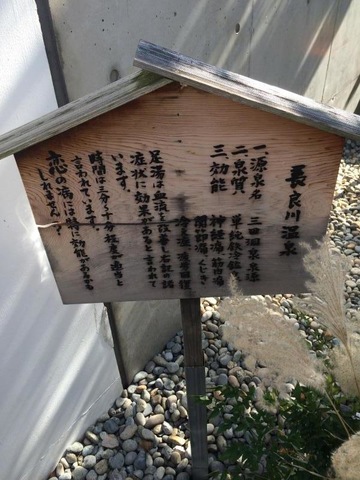 長良川温泉
一 源泉名 三田温泉泉源
二 泉質 単純鉄冷鉱泉
三 効能 神経痛 筋肉痛
関節痛 くじき
冷え症 疲労回復
足湯は血流を改善し右記の諸
症状に効果があると言われて
います。
時間は三分から十分程度が適当と
言われています。
恋の病には特に効能があるかも
しれません！？